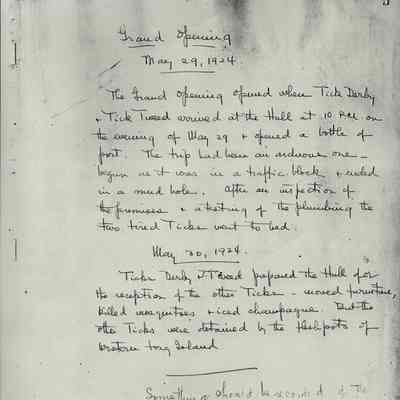 Grand Opening
May 29, 1924.
The Grand Opening opened when Tick Derby
+ Tick Tweed arrived at the Hull at 10 P.M. on
the evening of May 29 + opened a bottle of
port. The trip had been an arduous one -
begun as it was in a traffic block + ended
in a mud hole. After an inspection of
the premises + a testing of the plumbing the
two tired Ticks went to bed.
May 30, 1924.
Ticks Derby & Tweed prepared the Hull for
the reception of the other Ticks - moved furniture,
killed mosquitoes + iced champagne. But the
other Ticks were detained by the fleshpots of
Western Long Island
Something should be recorded of the